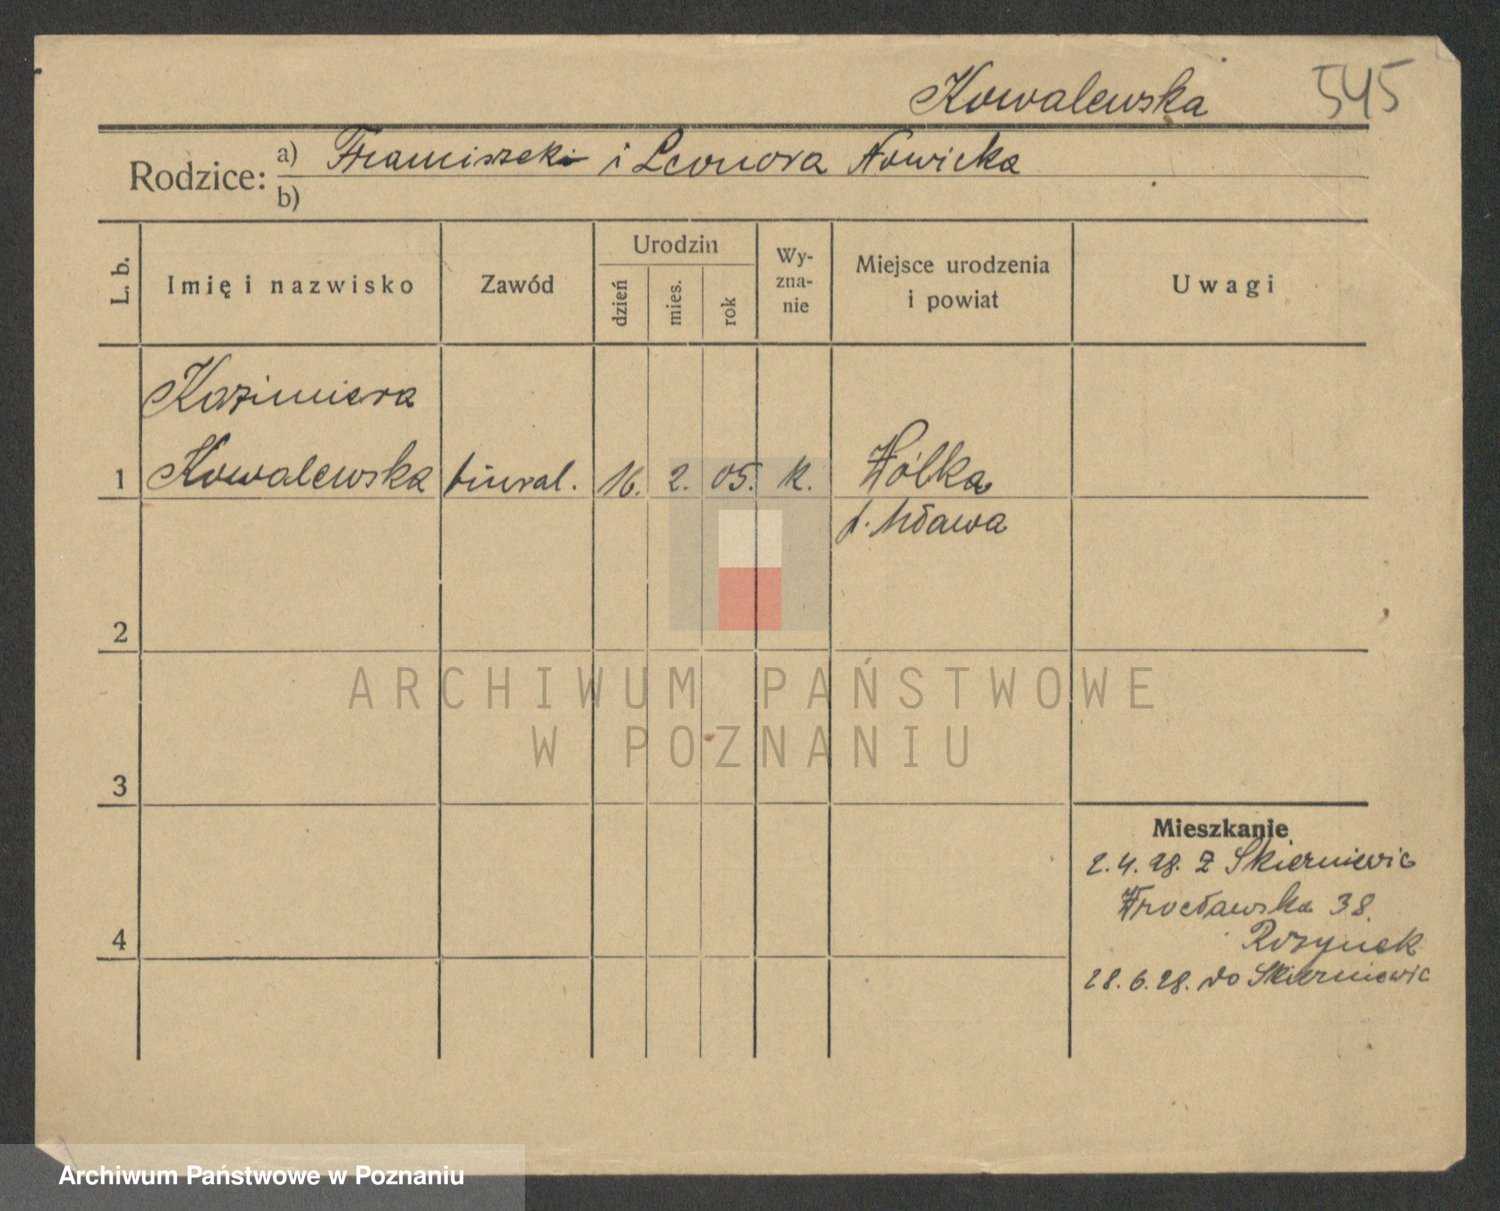 Kowalewska 545
Rodzice: a) Franciszek i Leonora Nowicka
b)
L. b. Imię i nazwisko Zawód Urodzin dzień mies. rok Wyznanie Miejsce urodzenia i powiat Uwagi
Kazimiera
1 Kowalewska biural. 16. 2. 05. k. Wólka
p. Mława
2
ARCHIWUM PAŃSTWOWE
W POZNANIU
3
Mieszkanie
2.4.28. z Skierniewic
Wrocławska 38.
4 Rozynek
28.6.28. do Skierniewic
Archiwum Państwowe w Poznaniu